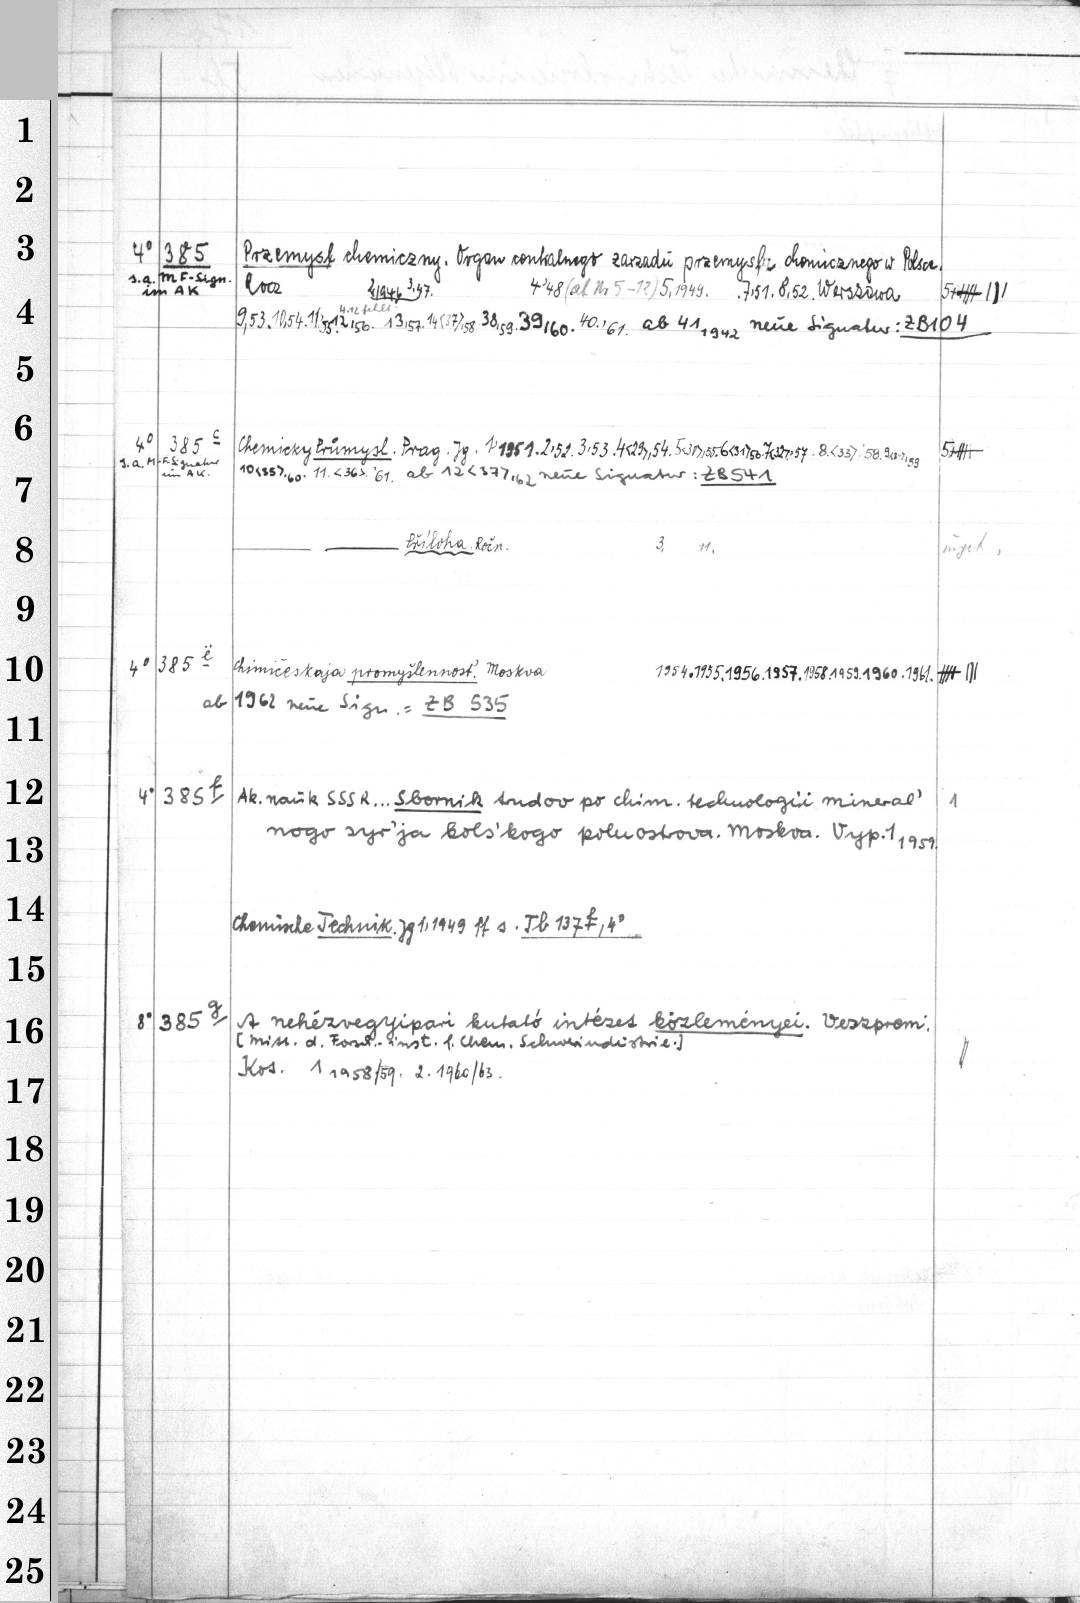 1
2
3
4° 385 Przemysł chemiczny. Organ centralnego zarzadu przemysłu chemicznego w Polsce.
s.a. MF-Sign. im AK
Rocz 2,1946 3,47. 4,'48 (ab Nr 5-12) 5,1949. 7,51. 8,52. Warszawa 5+
4
9,53. 10,54. 11,'55. 12,'56. 13,57. 14(37),58 38,59. 39,60. 40,'61. ab 41,1942 neue Signatur: ZB104
5
6
4° 385 c Chemicky Průmysl. Prag. Jg. 1,1951. 2,52. 3,53. 4<29>,54. 5<30>,55. 6<31>,56. 7<32>,57. 8.<33>,'58. 9,59 5+
s.a. M-F-Signatur im AK.
10<35>,60. 11.<36>.'61. ab 12<37>,62 neue Signatur: ZB541
7
8
Příloha. Ročn. 3, 11.
9
10
4° 385 ë Chimičeskaja promyšlennost'. Moskva 1954. 1955. 1956. 1957. 1958. 1959. 1960. 1961.
ab 1962 neue Sign. = ZB 535
11
12
4° 385 f Ak. nauk SSSR... Sbornik trudov po chim. technologii mineral' 1
13
nogo syr'ja Kols'kogo poluostrova. Moskva. Vyp. 1 1959.
14
Chemische Technik. Jg 1,1949 ff s. Tb 137 f, 4°
15
16
8° 385 g A nehézvegyipari kutató intézet közleményei. Veszprem.
[Mitt. d. Forsch.-inst. f. Chem. Schwerindustrie.]
17
Köt. 1 1958/59. 2. 1960/63.
18
19
20
21
22
23
24
25